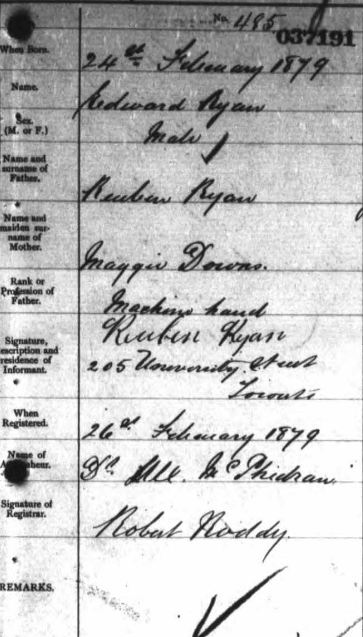 No. 485
037191
When Born.
24th February 1879
Name.
Edward Ryan
Sex.
(M. or F.)
Male
Name and
surname of
Father.
Reuben Ryan
Name and
maiden sur-
name of
Mother.
Maggie Downs.
Rank or
Profession of
Father.
Machine hand
Signature,
description and
residence of
Informant.
Reuben Ryan
205 University Street
Toronto
When
Registered.
26th February 1879
Name of
Dr. McPhedran
Signature of
Registrar.
Robert Roddy.
REMARKS.